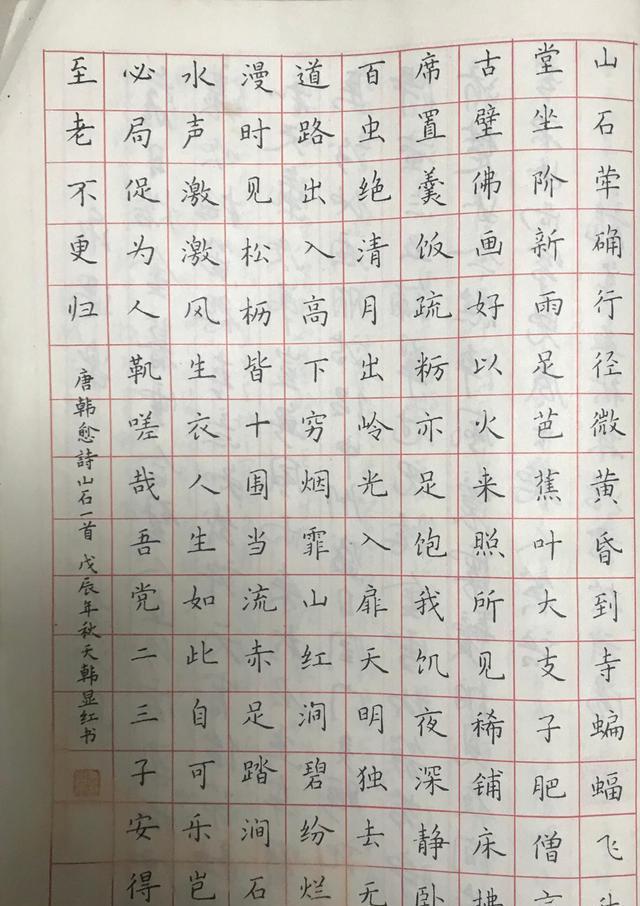 山石荦确行径微黄昏到寺蝙蝠飞
堂坐阶新雨足芭蕉叶大支子肥僧
古壁佛画好以火来照所见稀铺床拂
席置羹饭疏粝亦足饱我饥夜深静卧
百虫绝清月出岭光入扉天明独去无
道路出入高下穷烟霏山红涧碧纷烂
漫时见松枥皆十围当流赤足踏涧石
水声激激风生衣人生如此自可乐岂
必局促为人嗟哉吾党二三子安得
至老不更归
唐韩愈詩山石一首 戊辰年秋天韩显红书